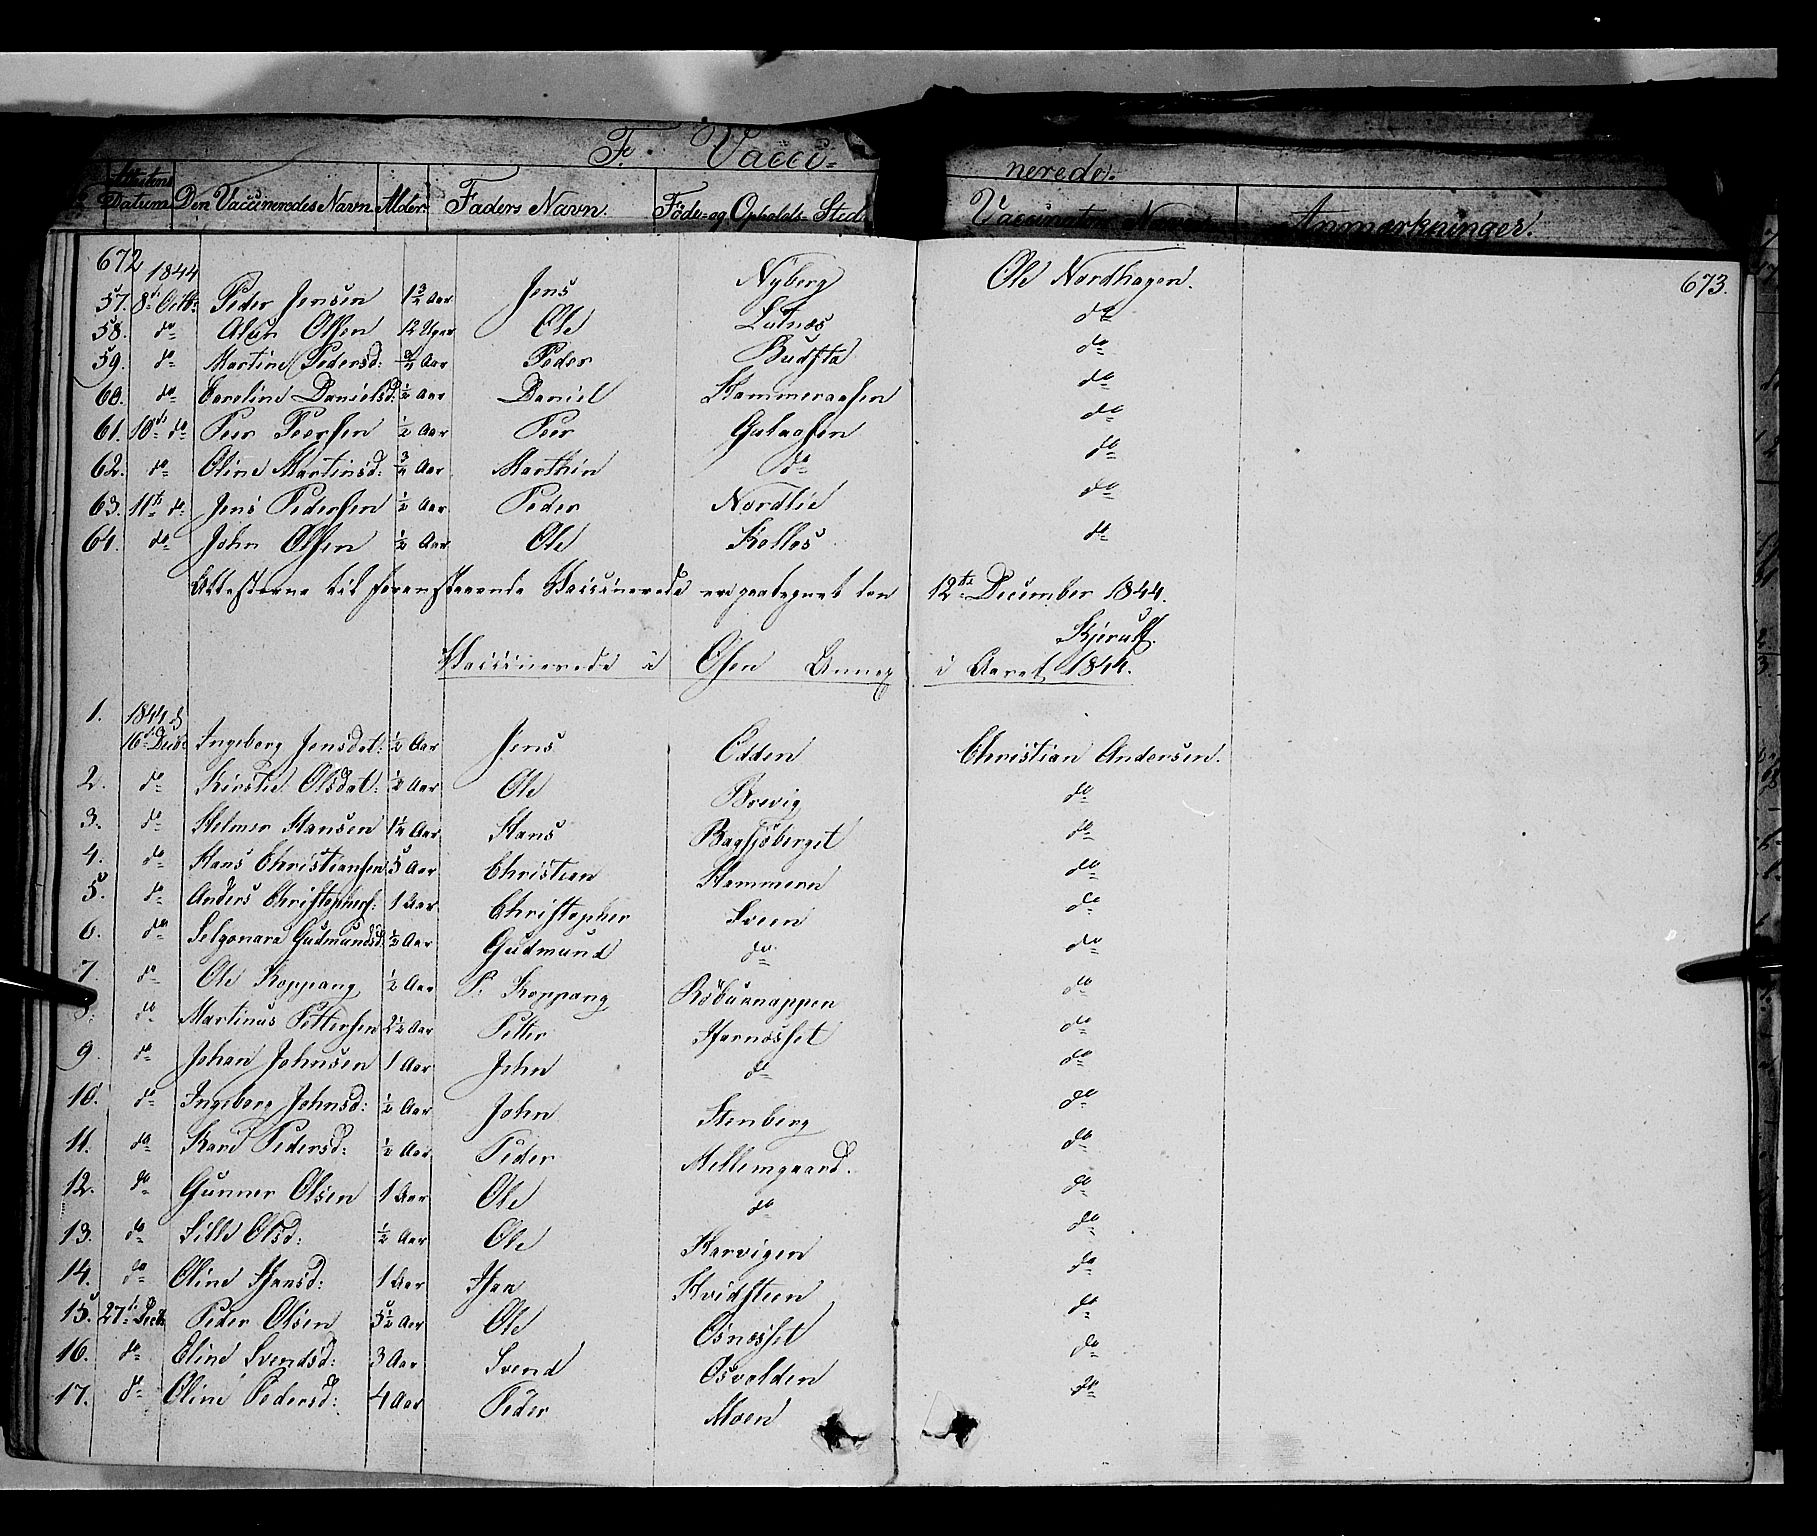 F. Vacci= nerede.
Attestens Datum Den Vaccineredes Navn Alder. Faders Navn. Føde- og Opholds-Sted Vaccinators Navn Anmærkninger.
672 673.
1844
57. 8de Octb: Peder Jensen 1 3/4 Aar Jens Nyberg Ole Nordhagen.
58. do Olsen 12 Uger Ole Lutnæs do
59. do Martine Pedersd: 3/4 Aar Peder do
60. do Caroline Danielsd: 1/2 Aar Daniel Kammeraasen do
61. 10de do Peer Peersen 1/2 Aar Peer Galaasen do
62. do Oline Martinsd: 3/4 Aar Marthin do do
63. 11te do Jens Pedersen 1/2 Aar Peder Nordlie do
64. do John Olsen 1/2 Aar Ole Kollos do
Attesterne til foranstaaende Vaccinerede ere paategnet den 12te December 1844.
Kjerulf.
Vaccinerede i Osen Annex i Aaret 1844.
1. 1844 d 16de Decbr Ingeborg Jensdat: 1/2 Aar Jens Odden Christian Andersen.
2. do Kirstie Olsdat: 1/2 Aar Ole Brevig do
3. do Helmer Hansen 1 1/2 Aar Hans Bagsjøberget do
4. do Hans Christiansen 5 Aar Christian Hammern do
5. do Anders Christophers: 1 Aar Christopher Sveen do
6. do Gudmundsd: 1/2 Aar Gudmund do do
7. do Ole Koppang 1/2 Aar P. Koppang do
8. do Martinus Pettersen 2 1/2 Aar Petter do
9. do Johan Johnsen 1 Aar John do do
10. do Ingeborg Johnsd: 1/2 Aar John Stenberg do
11. do Kari Pedersd: 1/2 Aar Peder Mellemgaard. do
12. do Gunner Olsen 1 Aar Ole do do
13. do Sille Olsd: 1/2 Aar Ole Harvigen do
14. do Oline 1 Aar Kvidsteen do
15. 27de Decbr Peder Olsen 5 1/2 Aar Ole Osnæsset do
16. do Eline Svendsd: 3 Aar Svend Osvolden do
17. do Oline Pedersd: 4 Aar Peder Moen do